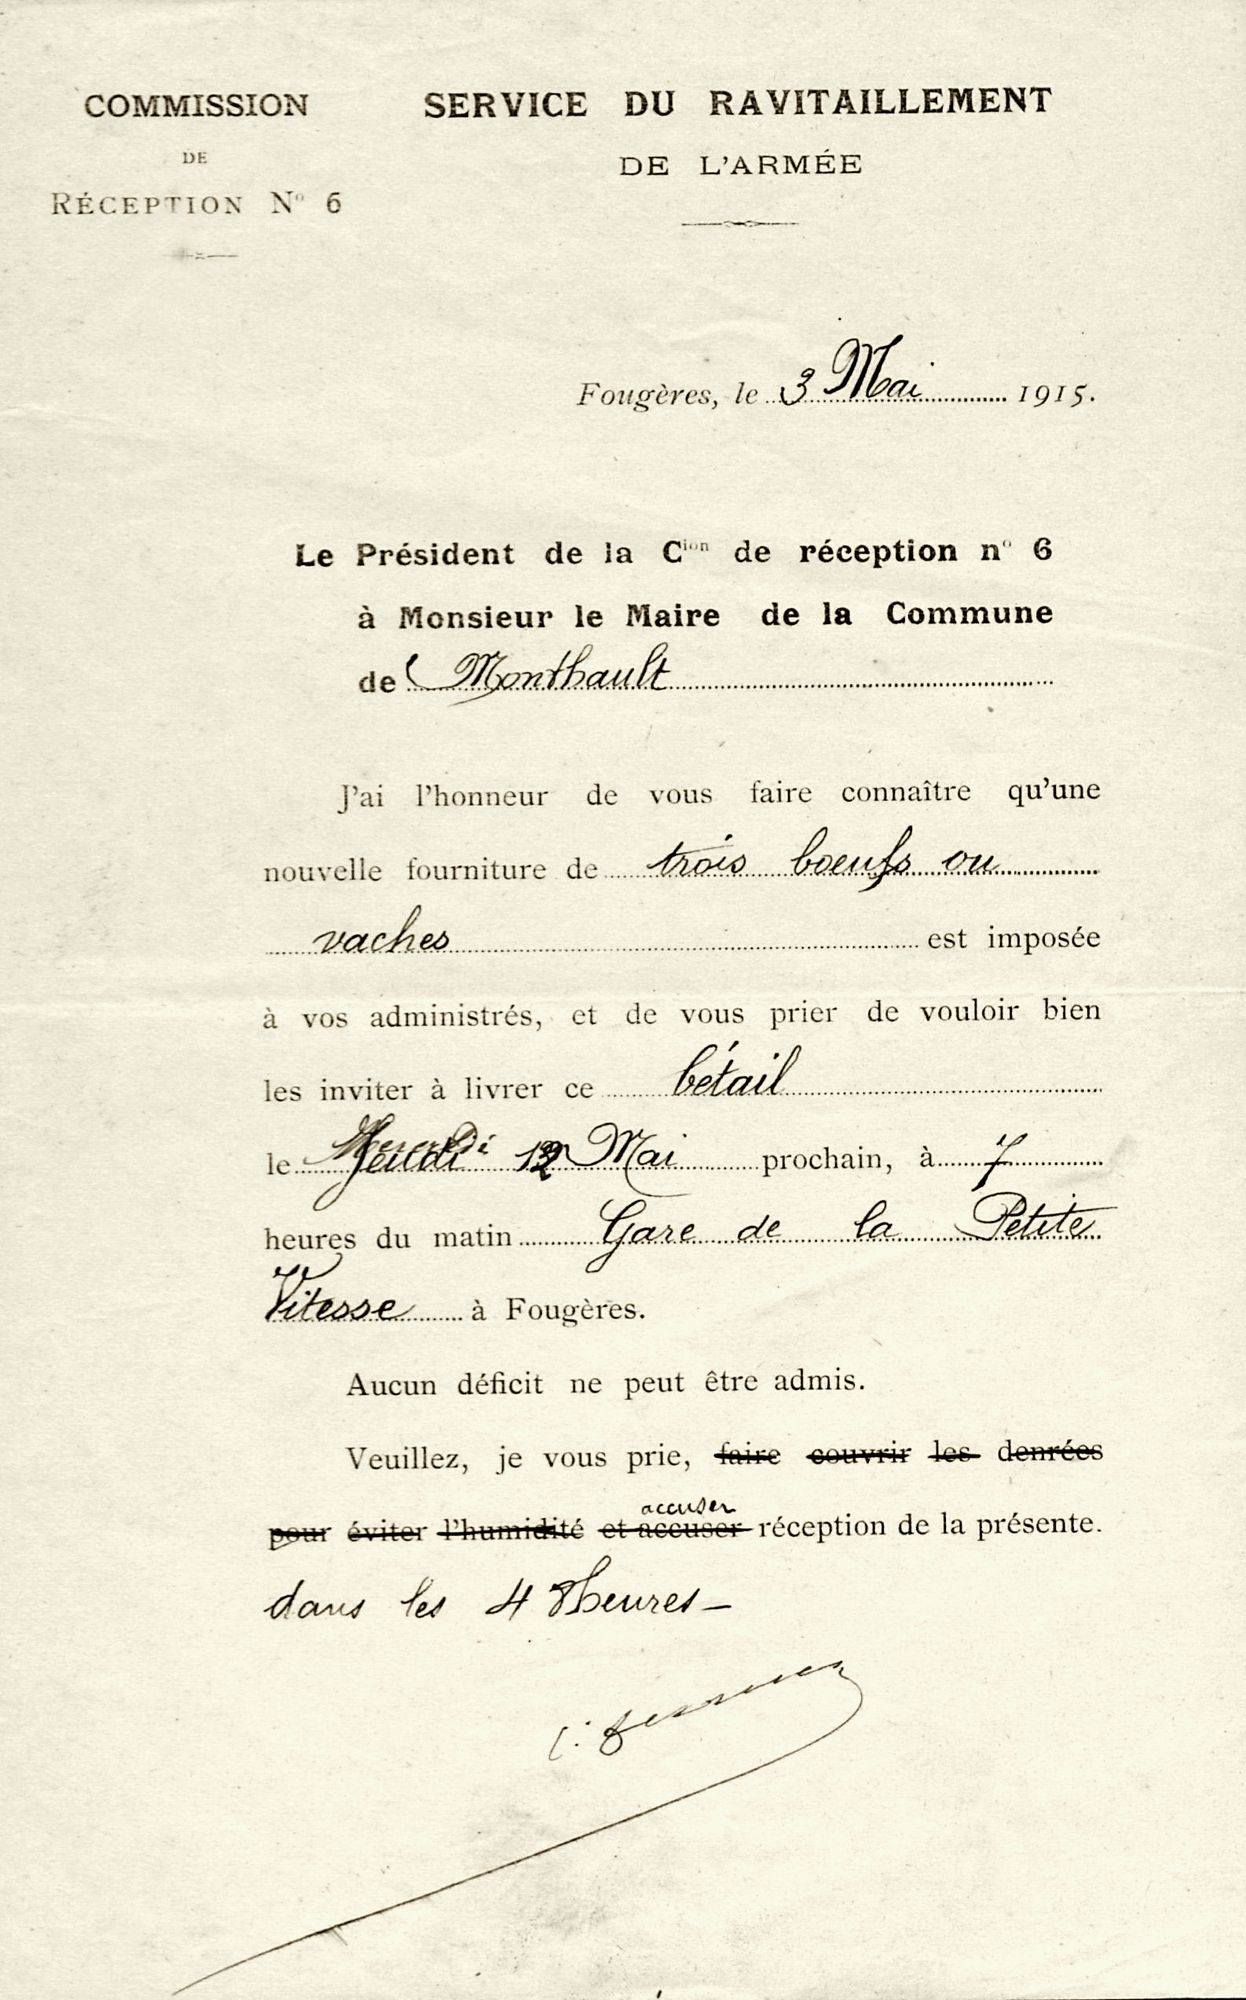 COMMISSION
DE
RÉCEPTION Nº 6
SERVICE DU RAVITAILLEMENT
DE L'ARMÉE
Fougères, le 3 Mai 1915.
Le Président de la Cion de réception nº 6
à Monsieur le Maire de la Commune
de Monthault
J'ai l'honneur de vous faire connaître qu'une
nouvelle fourniture de trois boeufs ou
vaches est imposée
à vos administrés, et de vous prier de vouloir bien
les inviter à livrer ce bétail
le Mercredi Jeudi Mai prochain, à 7
heures du matin Gare de la Petite
Vitesse à Fougères.
Aucun déficit ne peut être admis.
Veuillez, je vous prie, faire couvrir les denrées
accuser
pour éviter l'humidité et accuser réception de la présente.
dans les 48 heures –